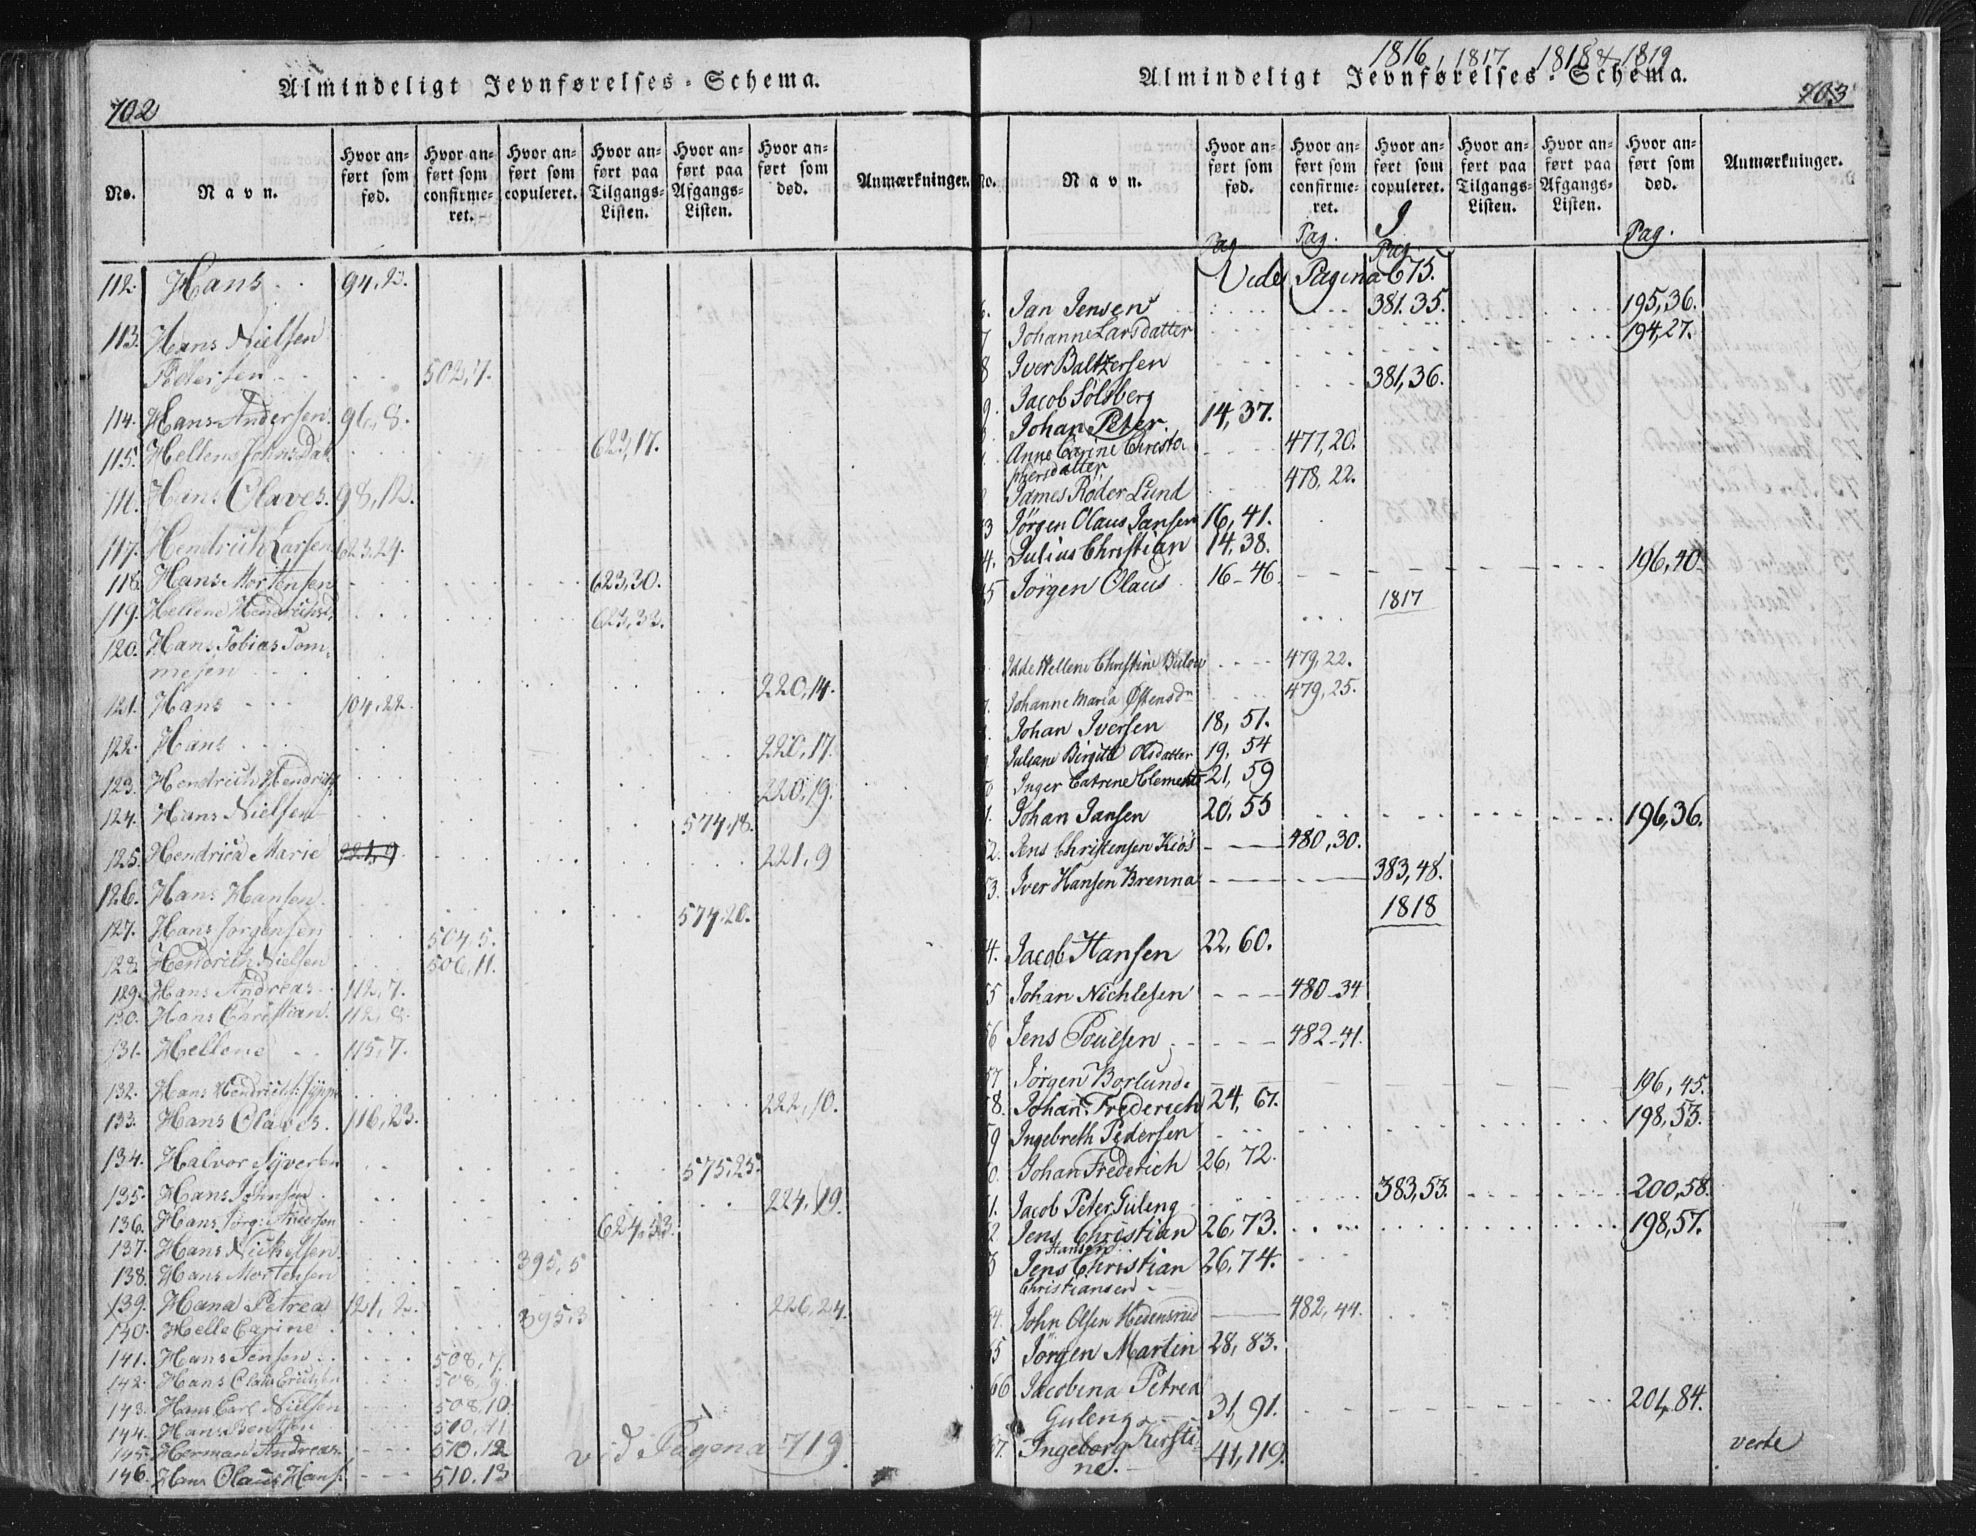 702
Almindeligt Jevnførelses-Schema.
No. | Navn. | Hvor anført som fød. | Hvor anført som confirmeret. | Hvor anført som copuleret. | Hvor anført paa Tilgangs-Listen. | Hvor anført paa Afgangs-Listen. | Hvor anført som død. | Anmærkninger.
112. Hans 94.2.
113. Hans Nielsen
Pedersen 502,7.
114. Hans Andersen. 96,8.
115. Hellene Johnsdat 622,17.
Hans Olaves. 98,12.
117. Hendrich Larsen 623.24.
118. Hans Mortensen 623,30.
119. Hellene Hendrichsd. 623,32.
120. Hans Tobias Tom-
mesen 220,14.
121. Hans 104.22.
122. Hans 220,17.
123. Hendrich Hendrichs. 220,19.
124. Hans Nielsen 574,18.
125. Hendrica Marie 221,9 221,9
126. Hans Hansen. 574.20.
127. Hans Jørgensen 504,5.
128. Hendrich Nielsen 506,11.
129. Hans Andreas 112,7.
130. Hans Christian. 112,8.
131. Hellene 115,7.
132. Hans Hendrich 222,10.
133. Hans Olaves. 116,23.
134. Halvor Syversen 575,25.
135. Hans Johnsen 224,19.
136. Hans Jørg: Andersen 624,53.
137. Hans Nickelsen. 395,5
138. Hans Mortensen
139. Hana Petrea 121,2. 226,24.
140. Helle Carine 395.3
141. Hans Jensen 508,7.
142. Hans Claus Erichsen 508,9.
143. Hans Carl Nielsen 508,10
144. Hans Bentsen 510,11
145. Herman Andreas. 510.12
146. Hans Olaus Hans. 510.13
vid Pagena 719.
1816, 1817 1818 & 1819
Almindeligt Jevnførelses-Schema.
703
No. | Navn. | Hvor anført som fød. | Hvor anført som confirmeret. | Hvor anført som copuleret. | Hvor anført paa Tilgangs-Listen. | Hvor anført paa Afgangs-Listen. | Hvor anført som død. | Anmærkninger.
J
Pag Pag. Pag. Pag.
Vide Pagina 675.
Jan Jensen 381.35. 195,36.
7 Johanne Larsdatter 194,27.
8 Iver Baltzersen 381,36.
9. Jacob Sølsberg
Johan Peter. 14,37.
Anne Carine Christo
phersdatter 477,20.
James Roder Lund 478,22.
3 Jørgen Olaus Jansen 16,41.
4. Julius Christian 14,38. 196,40
45 Jørgen Olaus 16-46
1817
Idde Hellene Christine Bülow 479,22.
7. Johanne Maria Østensdr 479,25.
Johan Iversen 18,51.
Juliane Birgitte Olsdatter 19,54
Inger Catrine Clements 21,59
1. Johan Jansen 20,55 196,36.
2. Jens Christensen Kiøs 480,30.
3. Iver Hansen Brenna 383,48.
1818
4. Jacob Hansen 22,60.
5 Johan Nichlesen 480-34
56 Jens Poulsen 482-41.
57. Jørgen Borlund. 196,45.
8. Johan Frederich 24,67. 198,53.
9 Ingebreth Pedersen
0. Johan Frederich 26,72.
1. Jacob Peter Guleng 383,53. 200,58.
2 Jens Christian 26,73. 198,57.
Hansen
3 Jens Christian 26,74.
Christiansen
4. John Olsen Hedensrud 482,44.
65 Jörgen Martin 28,83.
66 Jacobina Petrea
Guleng 31,91. 201,84.
67. Ingeborg Kirsti-
ne. 41,119.
verte